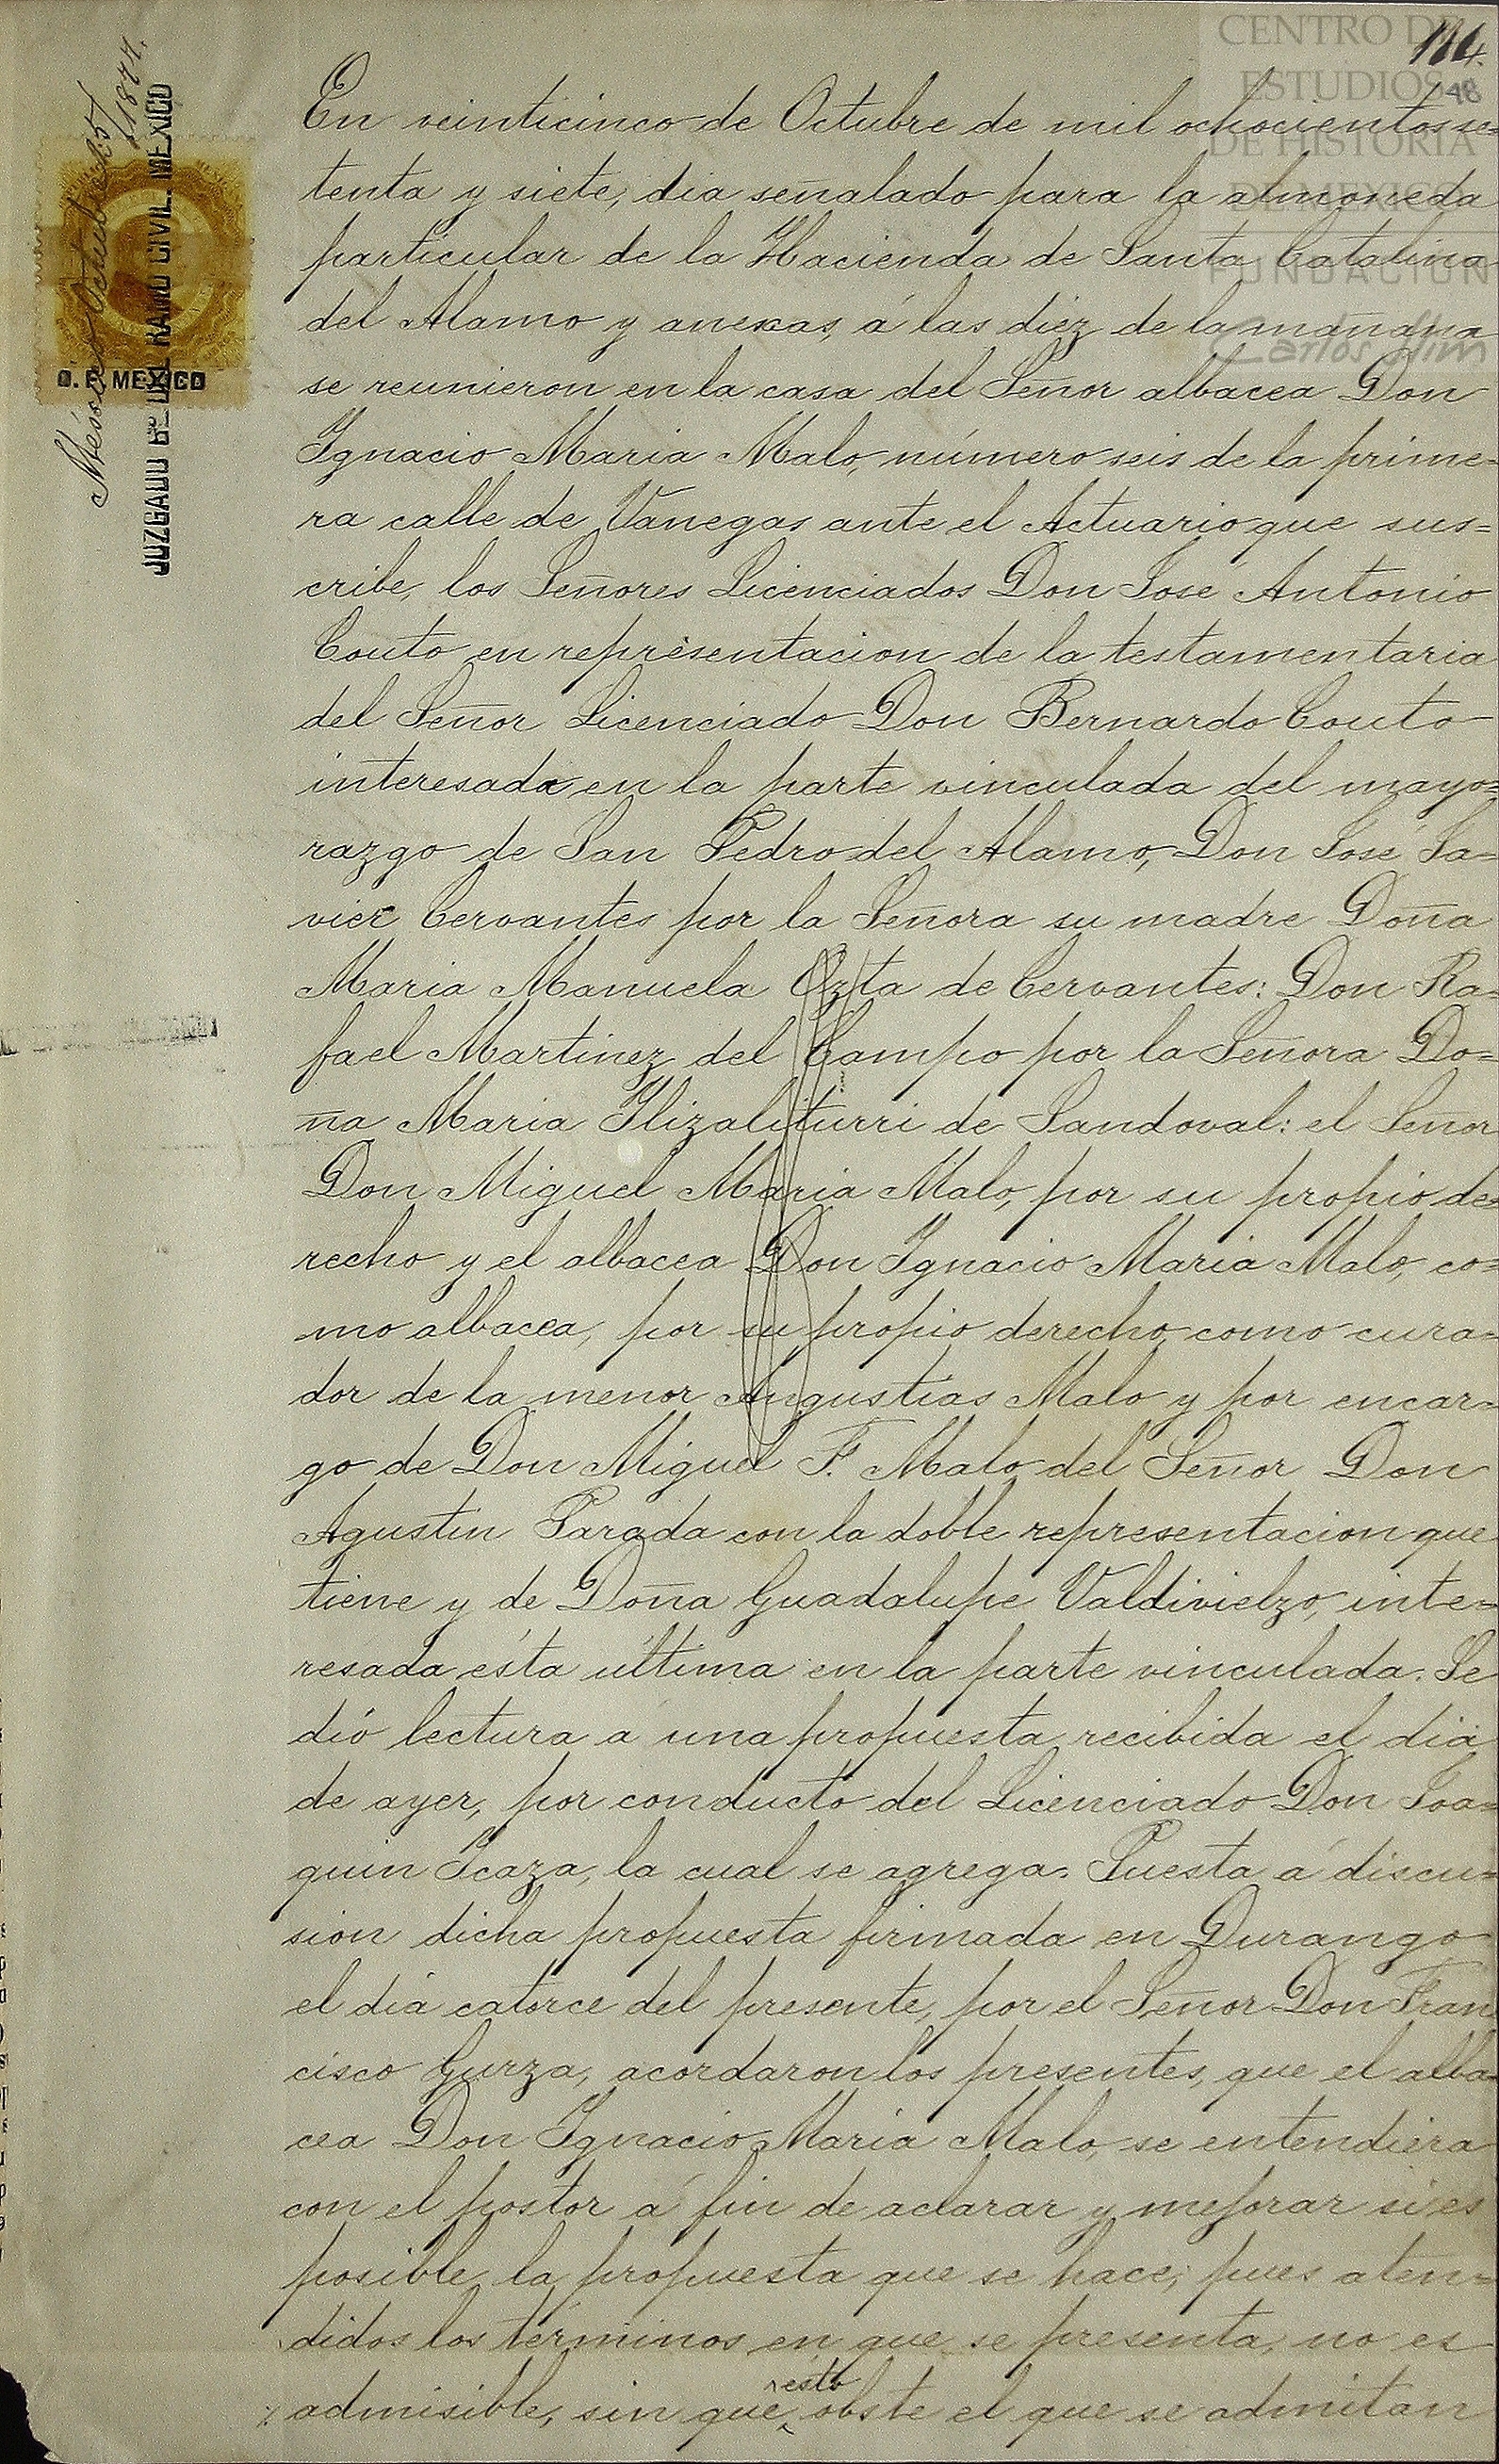 114.
48
CENTRO DE
ESTUDIOS
DE HISTORIA
DE MEXICO
FUNDACION
Carlos Slim
México Octubre 25/1877.
JUZGADO 6º DEL RAMO CIVIL. MEXICO
D. F. MEXICO
En veinticinco de Octubre de mil ochocientos se=
tenta y siete, dia señalado para la almoneda
particular de la Hacienda de Santa Catalina
del Alamo y anexas, á las diez de la mañana
se reunieron en la casa del Señor albacea Don
Ygnacio Maria Malo, número seis de la prime=
ra calle de Vanegas ante el Actuario que sus=
cribe, los Señores Licenciados Don José Antonio
Couto en representacion de la testamentaria
del Señor Licenciado Don Bernardo Couto
interesada en la parte vinculada del mayo=
razgo de San Pedro del Alamo, Don José Ja=
vier Cervantes por la Señora su madre Doña
Maria Manuela Ozta de Cervantes: Don Ra=
fael Martinez del Campo por la Señora Do=
ña Maria Ylizaliturri de Sandoval: el Señor
Don Miguel Maria Malo, por su propio de=
recho y el albacea Don Ygnacio Maria Malo, co=
mo albacea, por su propio derecho como cura=
dor de la menor Angustias Malo y por encar=
go de Don Miguel F. Malo del Señor Don
Agustin Parada con la doble representacion que
tiene y de Doña Guadalupe Valdivielzo, inte=
resada ésta última en la parte vinculada. Se
dió lectura a una propuesta recibida el dia
de ayer, por conducto del Licenciado Don Joa=
quin Icaza, la cual se agrega. Puesta á discu=
sion dicha propuesta firmada en Durango
el dia catorce del presente, por el Señor Don Fran
cisco Gurza, acordaron los presentes, que el alba=
cea Don Ygnacio Maria Malo, se entendiera
con el postor á fin de aclarar y mejorar si es
posible la propuesta que se hace; pues aten=
didos los términos en que se presenta, no es
admisible, sin que esto obste el que se admitan